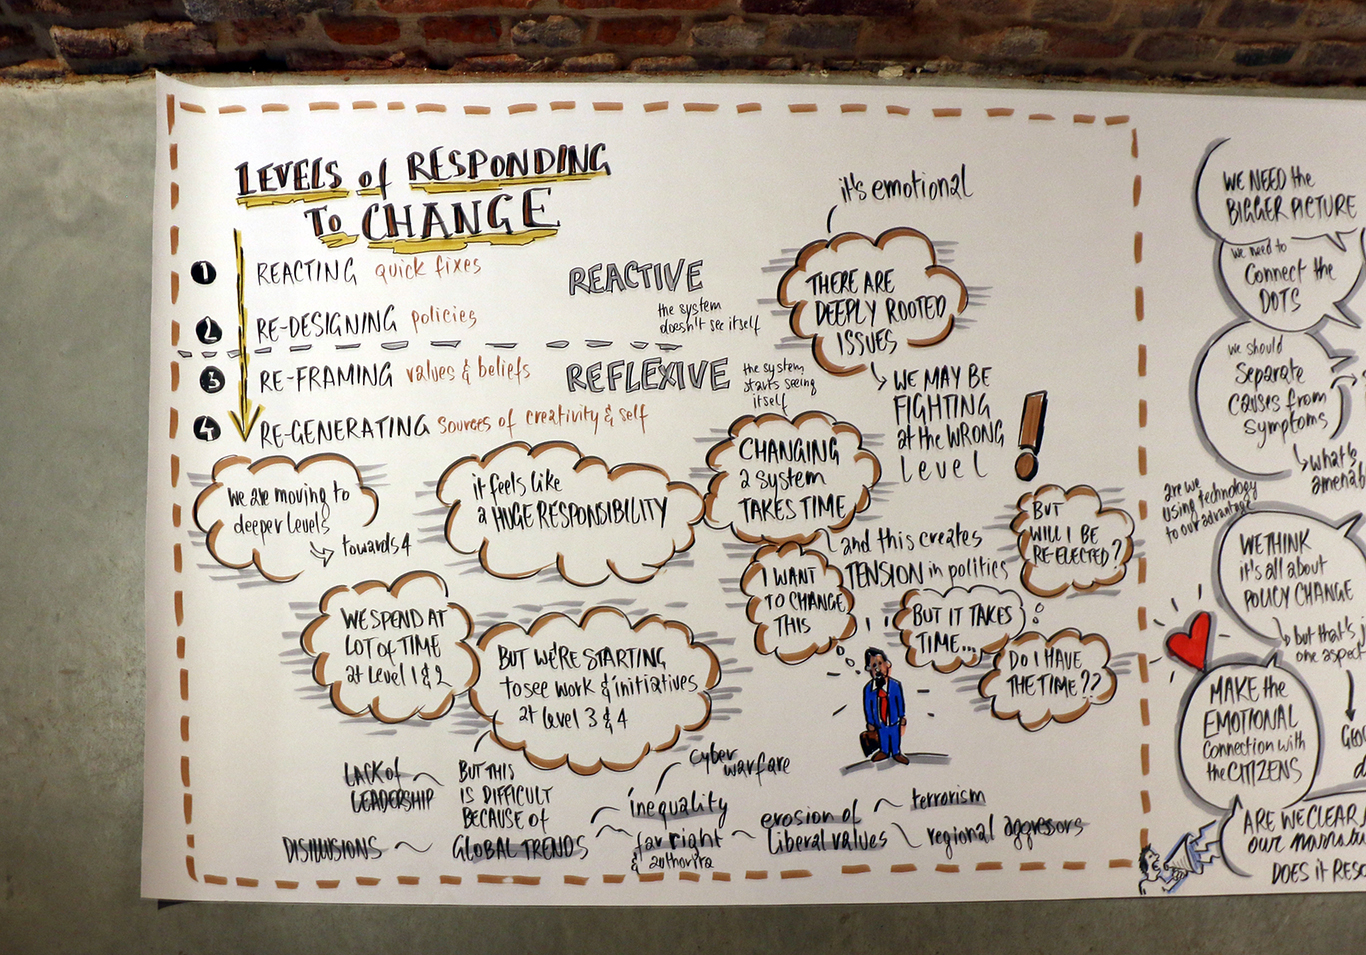 LEVELS of RESPONDING
TO CHANGE
1 REACTING quick fixes
2 RE-DESIGNING policies
REACTIVE
the system
doesn't see itself
3 RE-FRAMING values & beliefs
4 RE-GENERATING Sources of creativity & self
REFLEXIVE
the system
starts seeing
itself
it's emotional
THERE ARE
DEEPLY ROOTED
ISSUES
WE MAY BE
FIGHTING
at the WRONG
Level
!
we are moving to
deeper levels
towards 4
it feels like
a HUGE RESPONSIBILITY
CHANGING
a system
TAKES TIME
and this creates
TENSION in politics
I WANT
TO CHANGE
THIS
BUT IT TAKES
TIME...
BUT
WILL I BE
RE-ELECTED?
DO I HAVE
THE TIME??
WE SPEND A
LOT of TIME
at Level 1 & 2
BUT WE'RE STARTING
to see work & initiatives
at level 3 & 4
BUT THIS
IS DIFFICULT
BECAUSE of
GLOBAL TRENDS
LACK of
LEADERSHIP
DISILLUSIONS
inequality
cyber
warfare
far right
&
erosion of
liberal values
terrorism
regional aggressors
WE NEED the
BIGGER PICTURE
we need to
Connect the
DOTS
we should
Separate
causes from
symptoms
what's
are we
using technology
to our advantage
WE THINK
it's all about
POLICY CHANGE
but that's
one aspect
MAKE the
EMOTIONAL
Connection with
the CITIZENS
ARE WE CLEAR
our
DOES it